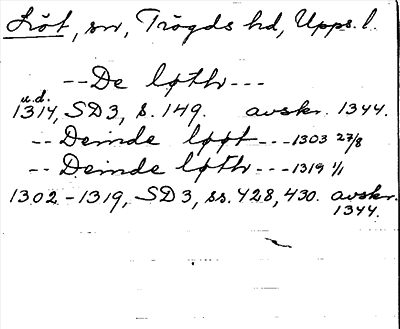 Löt, sn, Trögds hd, Upps. l.
-- De løth ---
u.d.
1314, SD3, s. 149. avskr. 1344.
-- Deinde løøt --- 1303 27/8
-- Deinde løth --- 1319 1/1
1302-1319, SD3, ss. 428, 430. avskr.
1344.